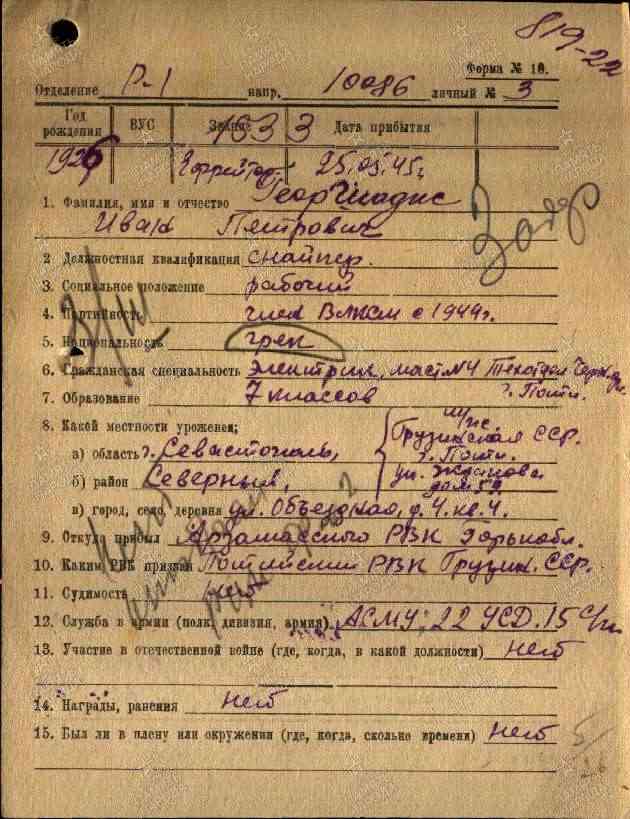 819-22
Форма № 10.
Отделение Р-1 напр. 10086 личный № 3
Год рождения ВУС Звание Дата прибытия
1633
1926 Ефрейтор 25.05.45г.
1. Фамилия, имя и отчество Георгиадис
Иван Петрович
2 Должностная квалификация снайпер.
3. Социальное положение рабочий
4. Партийность член ВЛКСМ с 1944г.
5. Национальность грек
6. Гражданская специальность электрик, маст №4
г. Поти.
7. Образование 7 классов
8. Какой местности уроженец;
Грузинская ССР.
а) область г. Севастополь, г. Поти.
б) район Северный, ул. Жданова
дом 59
в) город, село, деревня ул. Объездная, д. 4. кв. 4.
9. Откуда прибыл Арзамасского РВК Горьк. обл.
10. Каким РВК призван Потийский РВК Грузин. ССР.
11. Судимость нет
12. Служба в армии (полк, дивизия, армия) АСМУ; 22 УСД. 15 с/п
13. Участие в отечественной войне (где, когда, в какой должности) нет
14. Награды, ранения нет
15. Был ли в плену или окружении (где, когда, сколько времени) нет